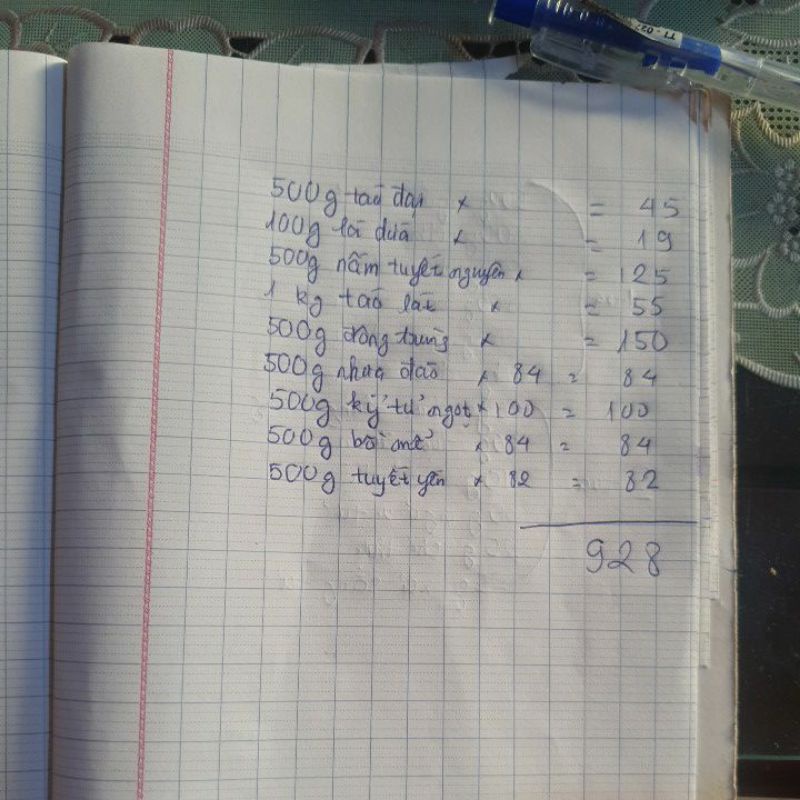 TT-027
500g táo đỏ x = 45
100g lá dứa x = 19
500g nấm tuyết nguyên x = 125
1 kg táo lát x = 55
500g đông trùng x = 150
500g nhựa đào x 84 = 84
500g kỷ tử ngọt x 100 = 100
500g bồ mễ x 84 = 84
500g tuyết yến x 82 = 82
928